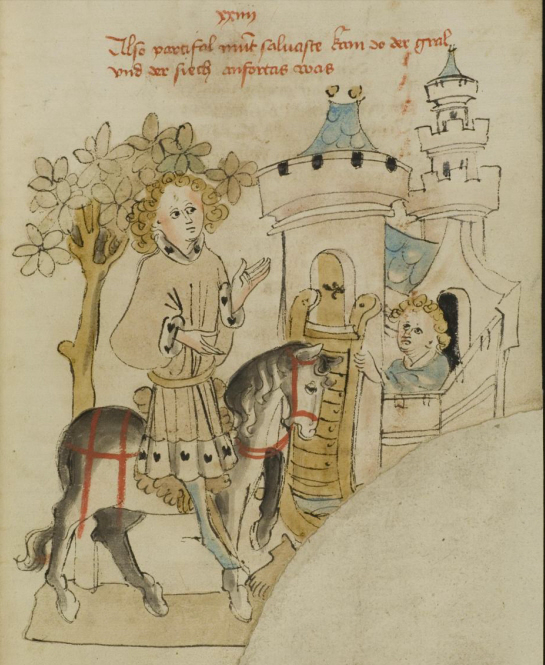 Also partifal mūt saluaste kam do der gral
vnd der siech anfortas was